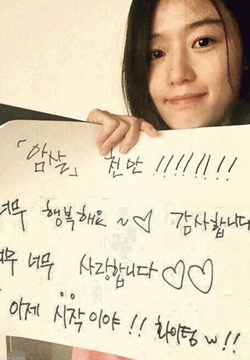 「암살」 천만 !!!!!!!!
너무 행복해요~♡ 감사합니다
너무 너무 사랑합니다♡♡
이제 시작이야!! 화이팅 w!!